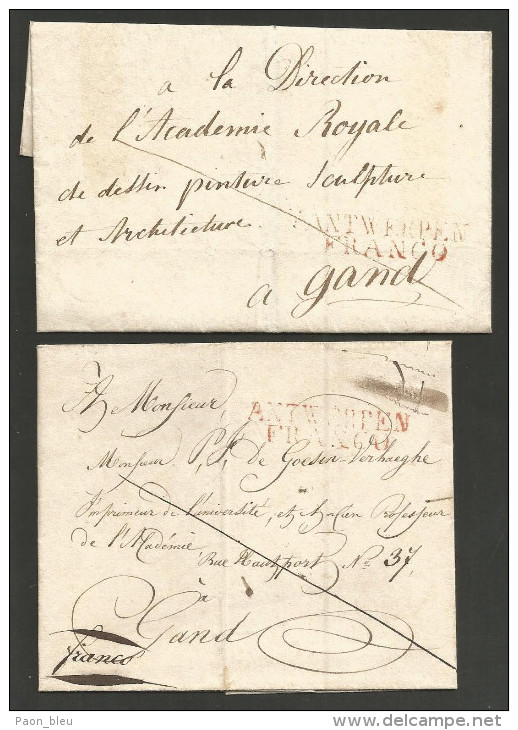 a la Direction
de l'Academie Royale
de dessin pinture sculpture
et Architecture.
ANTWERPEN
FRANCO
a gand
A Monsieur,
ANTWERPEN
FRANCO
Monsieur P. F. de Goesin-Verhaeghe
Imprimeur de l'université, et Ancien Professeur
de l'Académie
Rue Hautport No 37,
à
Gand
franco
Paon_bleu
www.delcampe.net